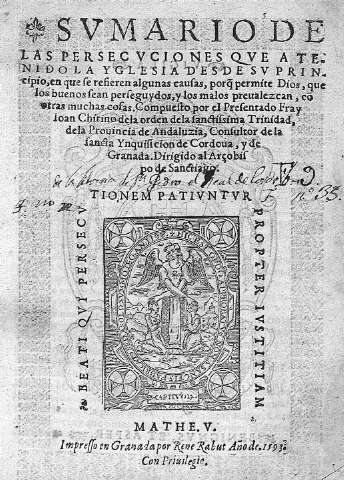 SVMARIO DE
LAS PERSECVCIONES QVE A TE
NIDO LA YGLESIA DESDE SV PRIN
cipio, en que se refieren algunas causas, porq̃ permite Dios, que
los buenos sean perseguydos, y los malos preualezcan, cõ
otras muchas cosas, Compuesto por el Presentado Fray
Ioan Chirino de la orden de la sanctissima Trinidad,
de la Prouincia de Andaluzia, Consultor de la
sancta Ynquisicion de Cordoua, y de
Granada. Dirigido al Arçobis
po de Sanctiago.
de
el Real de
TIONEM PATIVNTVR
BEATI QVI PERSECV
PROPTER IVSTITIAM
CAPTIVIS
MATHE. V.
Impresso en Granada por Rene Rabut Año de. 1593.
Con Priuilegio.